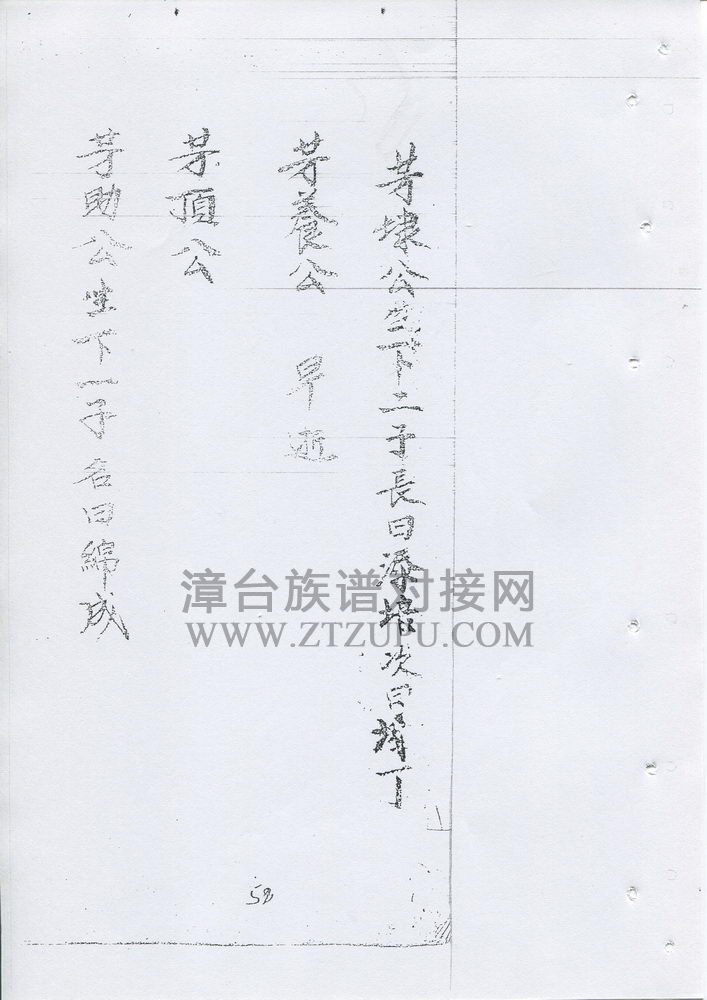 芽埭公生下二子長曰添培次曰增丁
芽養公 早逝
芽頂公
芽助公生下一子名曰綿成
漳台族谱对接网
WWW.ZTZUPU.COM
58